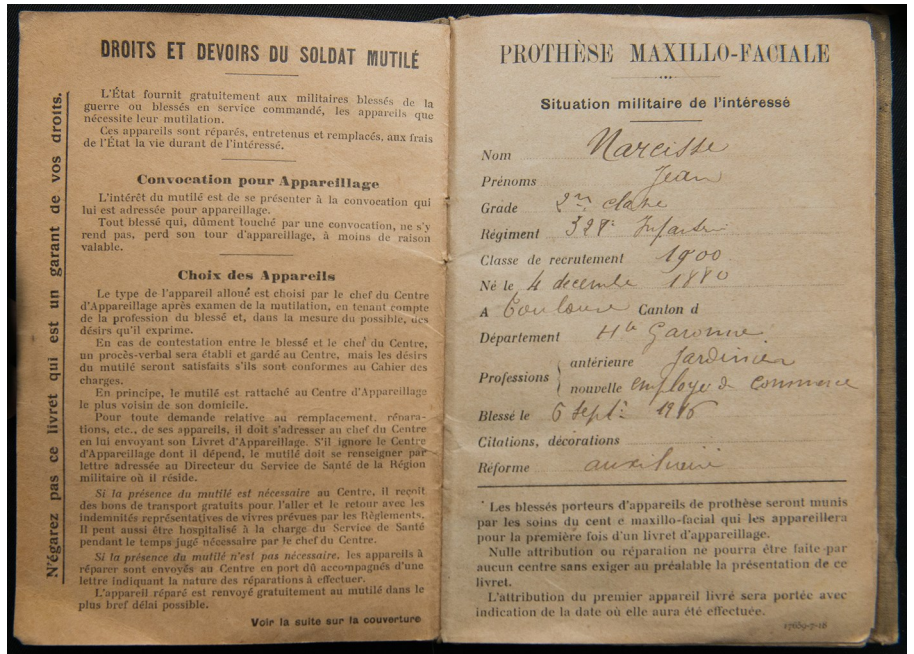 DROITS ET DEVOIRS DU SOLDAT MUTILÉ
L'État fournit gratuitement aux militaires blessés de la
guerre ou blessés en service commandé, les appareils que
nécessite leur mutilation.
Ces appareils sont réparés, entretenus et remplacés, aux frais
de l'État la vie durant de l'intéressé.
Convocation pour Appareillage
L'intérêt du mutilé est de se présenter à la convocation qui
lui est adressée pour appareillage.
Tout blessé qui, dûment touché par une convocation, ne s'y
rend pas, perd son tour d'appareillage, à moins de raison
valable.
Choix des Appareils
Le type de l'appareil alloué est choisi par le chef du Centre
d'Appareillage après examen de la mutilation, en tenant compte
de la profession du blessé et, dans la mesure du possible, des
désirs qu'il exprime.
En cas de contestation entre le blessé et le chef du Centre,
un procès-verbal sera établi et gardé au Centre, mais les désirs
du mutilé seront satisfaits s'ils sont conformes au Cahier des
charges.
En principe, le mutilé est rattaché au Centre d'Appareillage
le plus voisin de son domicile.
Pour toute demande relative au remplacement, répara-
tions, etc., de ses appareils, il doit s'adresser au chef du Centre
en lui envoyant son Livret d'Appareillage. S'il ignore le Centre
d'Appareillage dont il dépend, le mutilé doit se renseigner par
lettre adressée au Directeur du Service de Santé de la Région
militaire où il réside.
Si la présence du mutilé est nécessaire au Centre, il reçoit
des bons de transport gratuits pour l'aller et le retour avec les
indemnités représentatives de vivres prévues par les Règlements.
Il peut aussi être hospitalisé à la charge du Service de Santé
pendant le temps jugé nécessaire par le chef du Centre.
Si la présence du mutilé n'est pas nécessaire, les appareils à
réparer sont envoyés au Centre en port dû accompagnés d'une
lettre indiquant la nature des réparations à effectuer.
L'appareil réparé est renvoyé gratuitement au mutilé dans le
plus bref délai possible.
Voir la suite sur la couverture
N'égarez pas ce livret qui est un garant de vos droits.
PROTHÈSE MAXILLO-FACIALE
Situation militaire de l'intéressé
Nom Narcisse
Prénoms Jean
Grade 2me classe
Régiment Infanterie
Classe de recrutement 1900
Né le 4 decembre 1880
A Toulouse Canton d
Département Hte Garonne
Professions
antérieure Jardinier
nouvelle employé de commerce
Blessé le 6 Septe 1916
Citations, décorations
Réforme auxiliaire
Les blessés porteurs d'appareils de prothèse seront munis
par les soins du cent e maxillo-facial qui les appareillera
pour la première fois d'un livret d'appareillage.
Nulle attribution ou réparation ne pourra être faite par
aucun centre sans exiger au préalable la présentation de ce
livret.
L'attribution du premier appareil livré sera portée avec
indication de la date où elle aura été effectuée.
17639-7-18